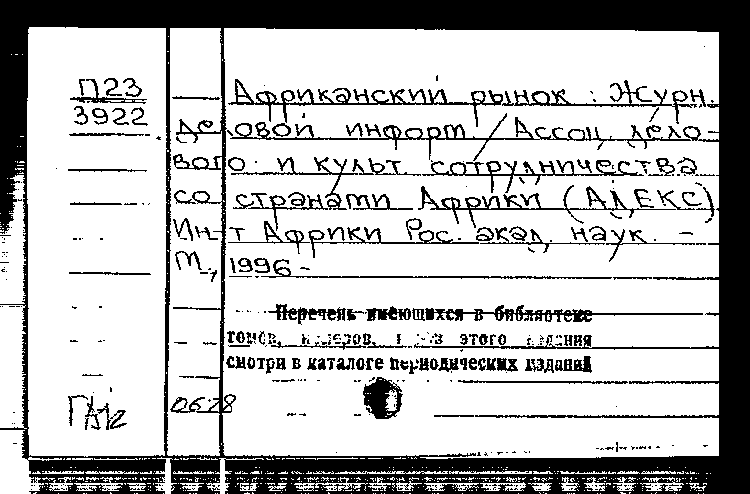 П23
3922
Африканский рынок : Журн.
деловой информ / Ассоц. дело-
вого и культ сотрудничества
со странами Африки (АДЕКС)
Ин-т Африки Рос. акад. наук. -
М., 1996 -
Перечень имеющихся в библиотеке
томов, номеров, этого издания
смотри в каталоге периодических изданий
0628